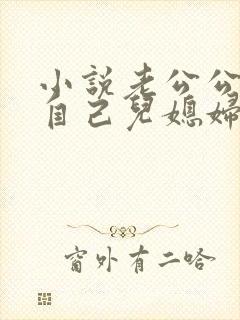 小說老公公
自己兒媳婦
窗外有二哈